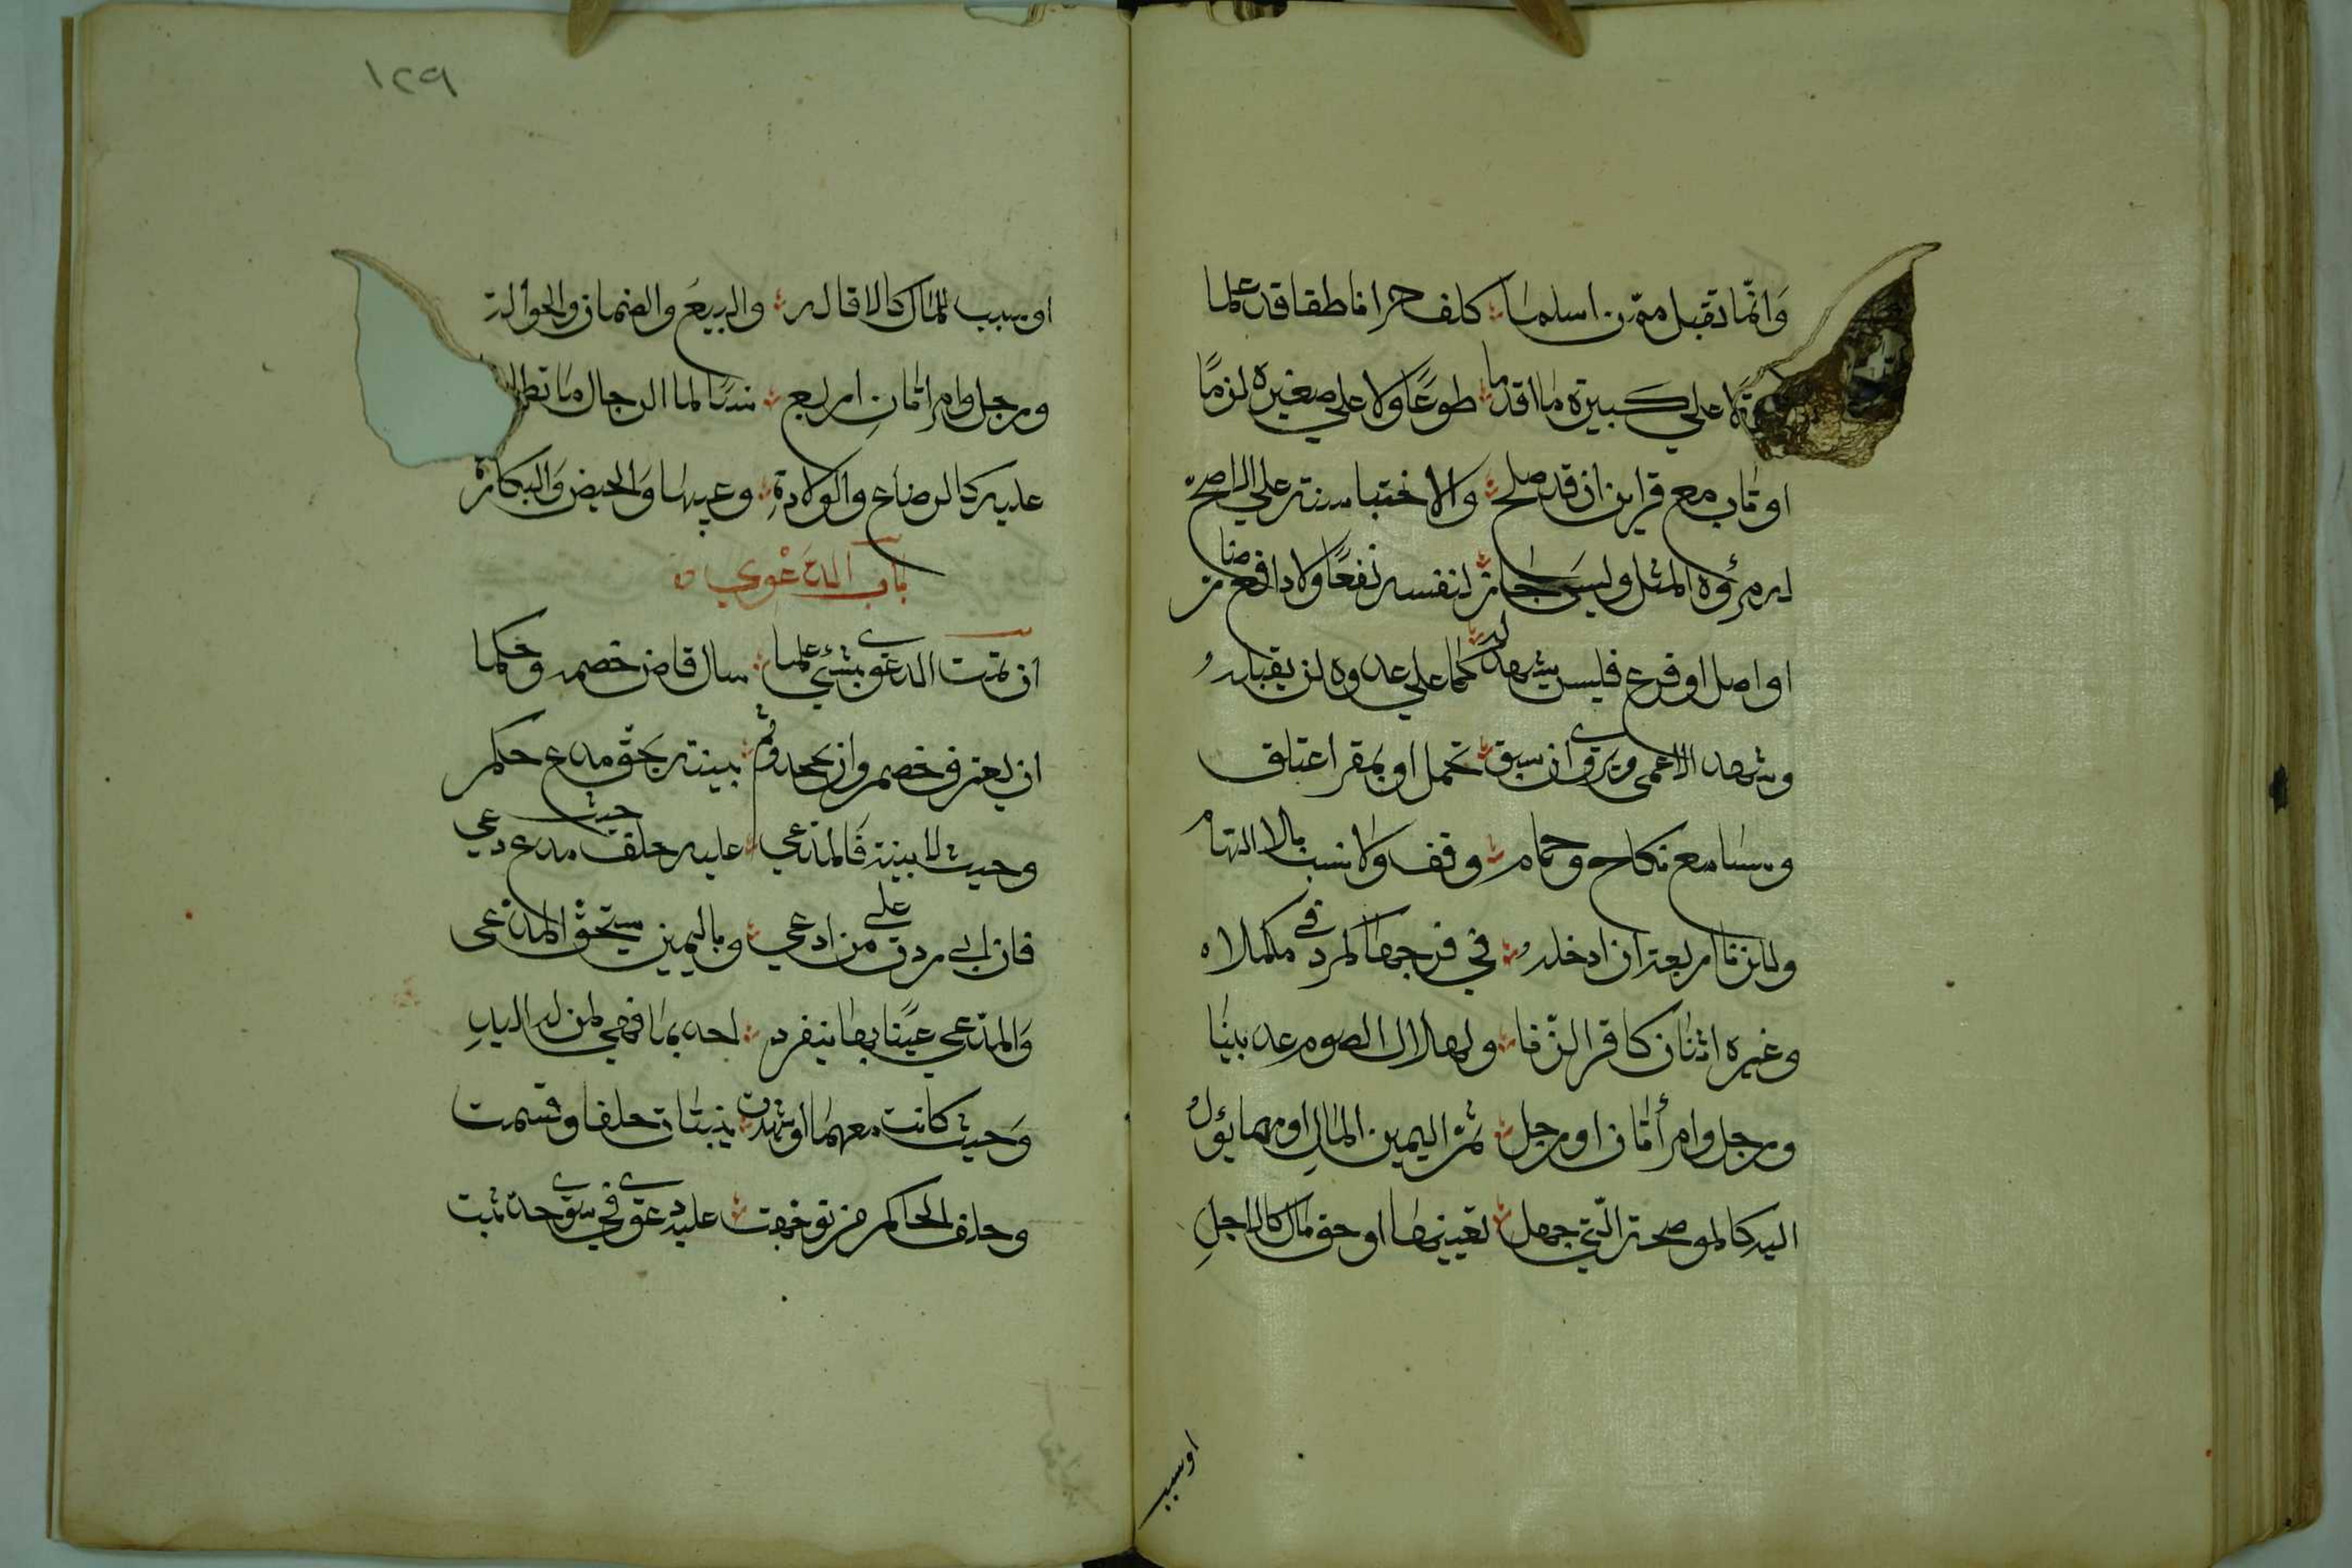 وَانّما تقبل ممّن اسلما ؞ كلف حرا ناطقا قد علما
علي كبيرة ما اقدما ؞ طوعًا ولا علي صغيره لزمًا
او تاب مع قراين ان قد صلح ؞ والاختبا سنة علي الاصح
مرؤه المثل وليس جاز ؞ لنفسه نفعًا ولا دافع ضار
او اصل او فرع فليس يشهد له ؞ كما علي عدوه لن يقبله
وشهد الاعمى ويروى ان سبق ؞ تحمل او بمقر اعتلق
وبتسامع نكاح وحمام ؞ وقف ولا نسب بلا اتهام
وللزنا اربعة ان ادخله ؞ في فرجها كمرود في مكحله
وغيره اثنان كاقرار الزّنا ؞ ولهلال الصوم عدل بينا
ورجل وامرأتان او رجل ؞ ثم اليمين المال او مهما يؤل
اليه كالموضحة الّتي جهل ؞ تعيينها او حق مال كالاجلِ
اوسبب
١٢٩
او سبب للمال كالاقاله ؞ والبيع والضمان والحوالة
ورجل وامراتانِ اربع ؞ نسًا لما الرجال ما تطلـ
عليه كالرضاع والولادةِ ؞ وعيبها والحيض والبكارة
باب الدعوي ه
ان تمت الدعوى بشئي علما ؞ سال قاض خصمه وحكما
ان يعترف خصم وان يجحد وثم ؞ بينة بحق مدع حكم
وحيث لا بينة فالمدّعي ؞ عليه حلف حيث مدع دعي
فان ابي ردت علي من ادعي ؞ وباليمين يستحق المدعى
والمدّعي عينًا بها ينفرد ؞ احدهما فهي لمن له اليدِ
وحيث كانت معهما او شهدت ؞ بينتان حلفا وقسمت
وحلف الحاكم من توجهت ؞ عليه دعوى في سوى حد ثبت